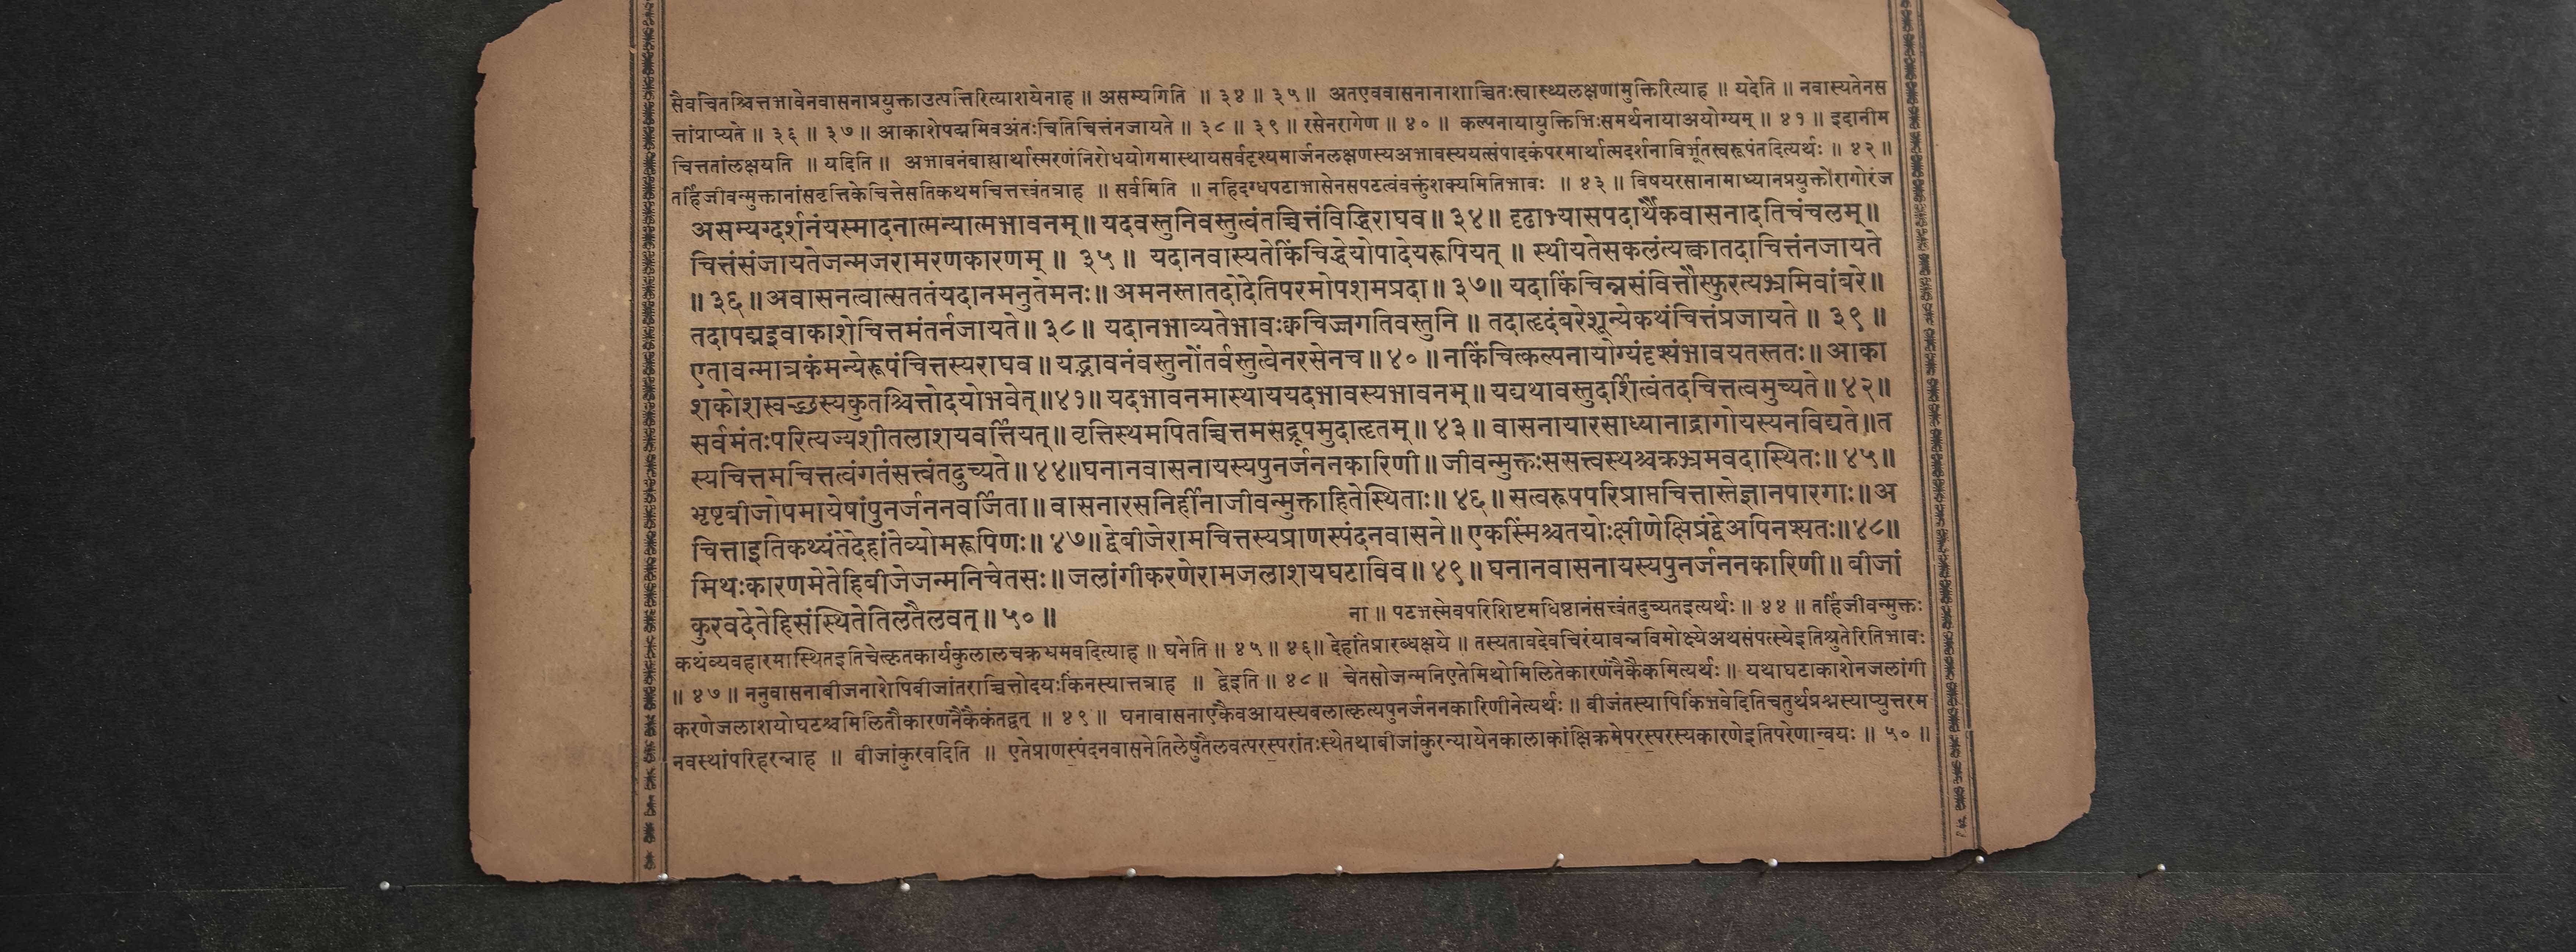 सैवचितश्चित्तभावेनवासनाप्रयुक्ताउत्पत्तिरित्याशयेनाह ॥ असम्यगिति ॥ ३४ ॥ ३५ ॥ अतएववासनानाशाच्चितःस्वास्थ्यलक्षणामुक्तिरित्याह ॥ यदेति ॥ नवास्यतेनस
त्तांप्राप्यते ॥ ३६ ॥ ३७ ॥ आकाशेपद्ममिवअंतःचितिचित्तंनजायते ॥ ३८ ॥ ३९ ॥ रसेनरागेण ॥ ४० ॥ कल्पनायायुक्तिभिःसमर्थनायाअयोग्यम् ॥ ४१ ॥ इदानीम
चित्ततांलक्षयति ॥ यदिति ॥ अभावनंबाह्यार्थास्मरणंनिरोधयोगमास्थायसर्वदृश्यमार्जनलक्षणस्यअभावस्ययत्संपादकंपरमार्थात्मदर्शनाविर्भूतस्वरूपंतदित्यर्थः ॥ ४२ ॥
तर्हिजीवन्मुक्तानांसवृत्तिकेचित्तेसतिकथमचित्तत्त्वंतत्राह ॥ सर्वमिति ॥ नहिदग्धपटाभासेनसपटत्वंवक्तुंशक्यमितिभावः ॥ ४३ ॥ विषयरसानामाध्यानप्रयुक्तोरागोरंज
असम्यग्दर्शनंयस्मादनात्मन्यात्मभावनम् ॥ यदवस्तुनिवस्तुत्वंतच्चित्तंविद्धिराघव ॥ ३४ ॥ दृढाभ्यासपदार्थैकवासनादतिचंचलम् ॥
चित्तंसंजायतेजन्मजरामरणकारणम् ॥ ३५ ॥ यदानवास्यतेकिंचिद्धेयोपादेयरूपियत् ॥ स्थीयतेसकलंत्यक्त्वातदाचित्तंनजायते
॥ ३६ ॥ अवासनत्वात्सततंयदानमनुतेमनः ॥ अमनस्तातदोदेतिपरमोपशमप्रदा ॥ ३७ ॥ यदाकिंचिन्नसंवित्तौस्फुरत्यभ्रमिवांबरे ॥
तदापद्मइवाकाशेचित्तमंतर्नजायते ॥ ३८ ॥ यदानभाव्यतेभावःक्वचिज्जगतिवस्तुनि ॥ तदाहृदंबरेशून्येकथंचित्तंप्रजायते ॥ ३९ ॥
एतावन्मात्रकंमन्येरूपंचित्तस्यराघव ॥ यद्भावनंवस्तुनोंतर्वस्तुत्वेनरसेनच ॥ ४० ॥ नकिंचित्कल्पनायोग्यंदृश्यंभावयतस्ततः ॥ आका
शकोशस्वच्छस्यकुतश्चित्तोदयोभवेत् ॥ ४१ ॥ यदभावनमास्थाययदभावस्यभावनम् ॥ यद्यथावस्तुदर्शित्वंतदचित्तत्वमुच्यते ॥ ४२ ॥
सर्वमंतःपरित्यज्यशीतलाशयवर्त्तियत् ॥ वृत्तिस्थमपितच्चित्तमसद्रूपमुदाहृतम् ॥ ४३ ॥ वासनायारसाध्यानाद्रागोयस्यनविद्यते ॥ त
स्यचित्तमचित्तत्वंगतंसत्त्वंतदुच्यते ॥ ४४ ॥ घनानवासनायस्यपुनर्जननकारिणी ॥ जीवन्मुक्तःससत्त्वस्थश्चक्रभ्रमवदास्थितः ॥ ४५ ॥
भृष्टबीजोपमायेषांपुनर्जननवर्जिता ॥ वासनारसनिर्हीनाजीवन्मुक्ताहितेस्थिताः ॥ ४६ ॥ सत्वरूपपरिप्राप्तचित्तास्तेज्ञानपारगाः ॥ अ
चित्ताइतिकथ्यंतेदेहांतेव्योमरूपिणः ॥ ४७ ॥ द्वेबीजेरामचित्तस्यप्राणस्पंदनवासने ॥ एकस्मिंश्चतयोःक्षीणेक्षिप्रंद्वेअपिनश्यतः ॥ ४८ ॥
मिथःकारणमेतेहिबीजेजन्मनिचेतसः ॥ जलांगीकरणेरामजलाशयघटाविव ॥ ४९ ॥ घनानवासनायस्यपुनर्जननकारिणी ॥ बीजां
कुरवदेतेहिसंस्थितेतिलतैलवत् ॥ ५० ॥
ना ॥ पटभस्मेवपरिशिष्टमधिष्ठानंसत्त्वंतदुच्यतइत्यर्थः ॥ ४४ ॥ तर्हिजीवन्मुक्तः
कथंव्यवहारमास्थितइतिचेत्कृतकार्यकुलालचक्रभ्रमवदित्याह ॥ घनेति ॥ ४५ ॥ ४६ ॥ देहांतेप्रारब्धक्षये ॥ तस्यतावदेवचिरंयावन्नविमोक्ष्येअथसंपत्स्येइतिश्रुतेरितिभावः
॥ ४७ ॥ ननुवासनाबीजनाशेपिबीजांतराच्चित्तोदयःकिंनस्यात्तत्राह ॥ द्वेइति ॥ ४८ ॥ चेतसोजन्मनिएतेमिथोमिलितेकारणंनैकैकमित्यर्थः ॥ यथाघटाकाशेनजलांगी
करणेजलाशयोघटश्चमिलितौकारणंनैकैकंतद्वत् ॥ ४९ ॥ घनावासनाएकैवआयस्यबलात्कृत्यपुनर्जननकारिणीनेत्यर्थः ॥ बीजंतस्यापिकिंभवेदितिचतुर्थप्रश्नस्याप्युत्तरम
नवस्थांपरिहरन्नाह ॥ बीजांकुरवदिति ॥ एतेप्राणस्पंदनवासनेतिलेषुतैलवत्परस्परांतःस्थेतथाबीजांकुरन्यायेनकालाकांक्षिक्रमेपरस्परस्यकारणेइतिपरेणान्वयः ॥ ५० ॥